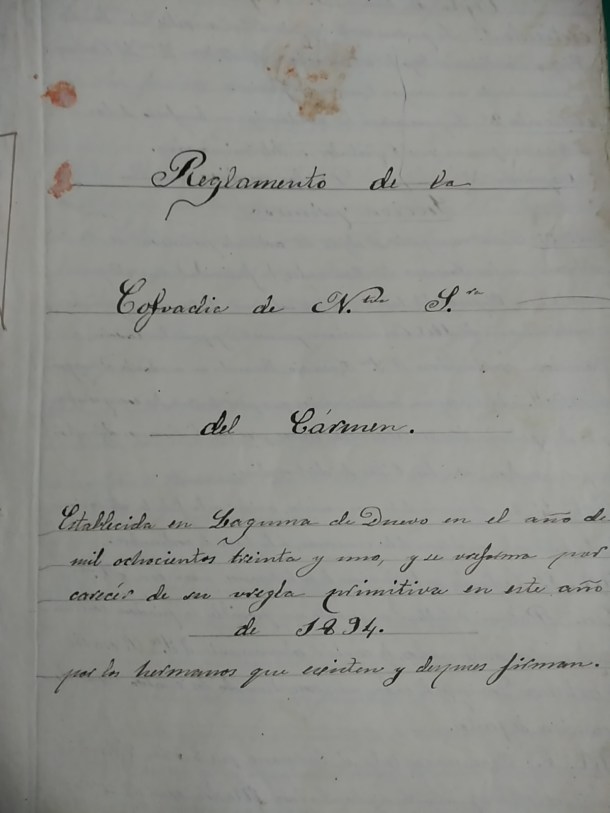 Reglamento de la
Cofradia de N.tra S.ra
del Cármen.
Establecida en Laguna de Duero en el año de
mil ochocientos treinta y uno, y se reforma por
carecér de su regla primitiva en este año
de 1894.
por los hermanos que existen y despues firman.